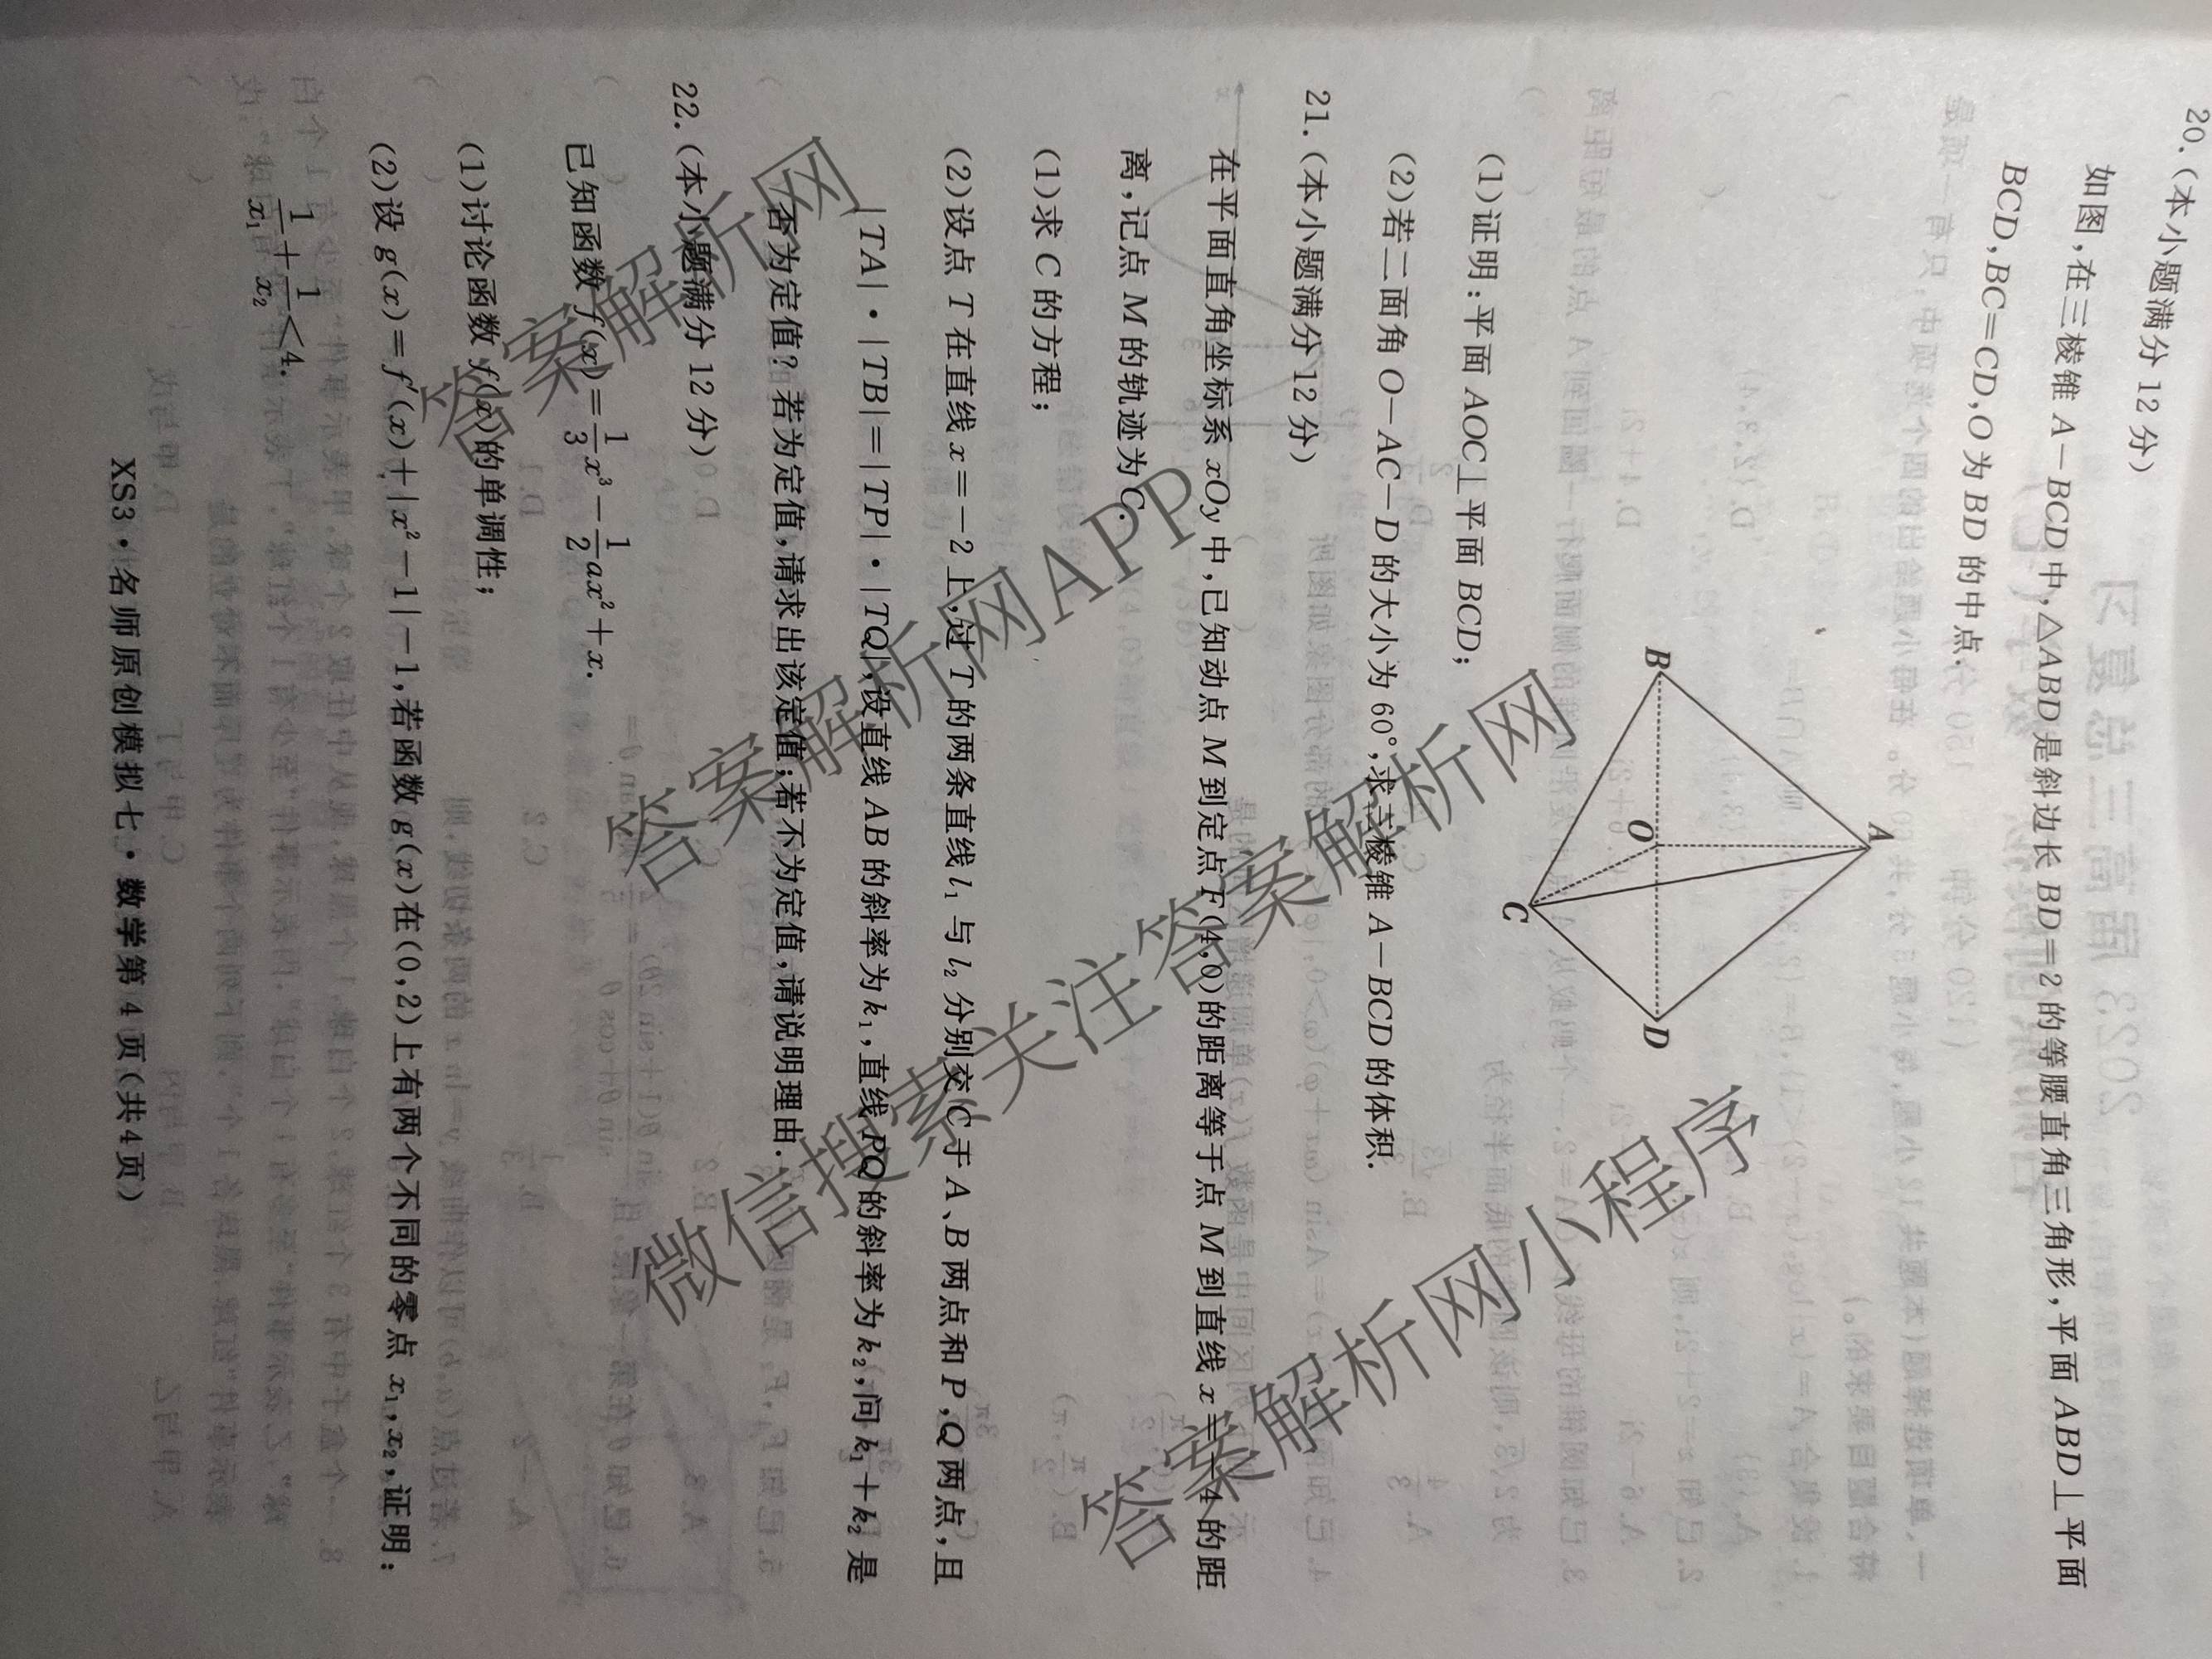 20.(本小题满分12分)
如图,在三棱锥A-BCD中,△ABD是斜边长BD=2的等腰直角三角形,平面ABD⊥平面
BCD,BC=CD,O为BD的中点.
A
B
O
D
C
(1)证明:平面AOC⊥平面BCD;
(2)若二面角O-AC-D的大小为60°,求三棱锥A-BCD的体积.
21.(本小题满分12分)
在平面直角坐标系xOy中,已知动点M到定点F(4,0)的距离等于点M到直线x=-4的距
离,记点M的轨迹为C.
(1)求C的方程;
(2)设点T在直线x=-2上,过T的两条直线l₁与l₂分别交C于A、B两点和P,Q两点,且
|TA|·|TB|=|TP|·|TQ|,设直线AB的斜率为k₁,直线PQ的斜率为k₂,问k₁+k₂是
否为定值?若为定值,请求出该定值;若不为定值,请说明理由.
22.(本小题满分12分)
已知函数f(x)=1/3x³-1/2ax²+x.
(1)讨论函数f(x)的单调性;
(2)设g(x)=f′(x)+|x²-1|-1,若函数g(x)在(0,2)上有两个不同的零点x₁,x₂,证明:
1/x₁+1/x₂<4.
XS3·名师原创模拟七·数学第4页(共4页)
答案解析网
答案解析网APP
微信搜索关注答案解析网
答案解析网小程序